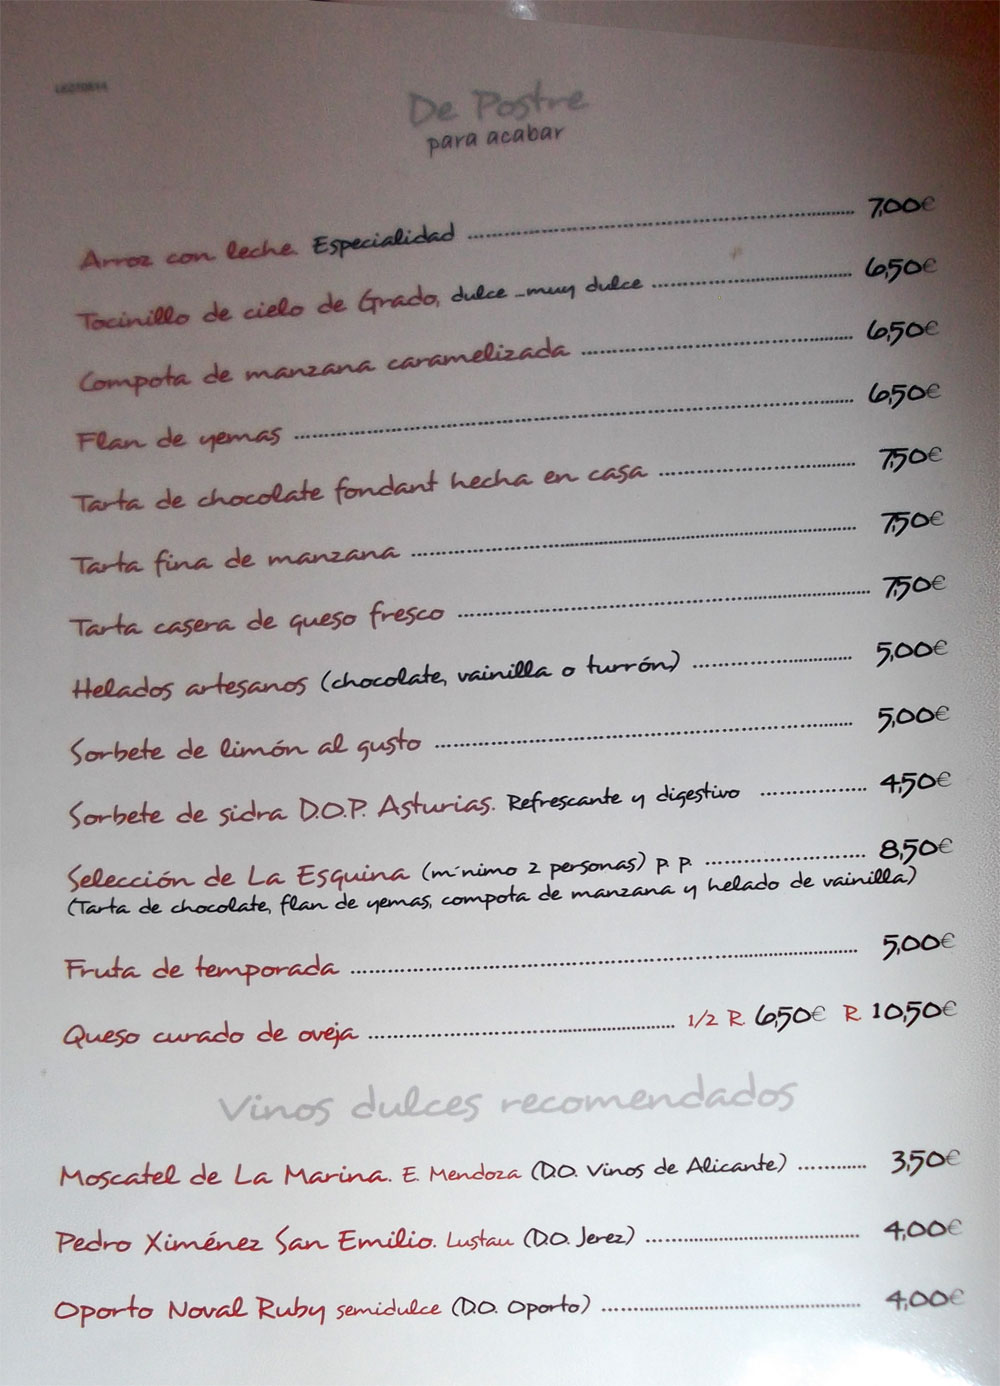 De Postre
para acabar
Arroz con leche. Especialidad ........ 7,00€
Tocinillo de cielo de Grado, dulce _muy dulce ........ 6,50€
Compota de manzana caramelizada ........ 6,50€
Flan de yemas ........ 6,50€
Tarta de chocolate fondant hecha en casa ........ 7,50€
Tarta fina de manzana ........ 7,50€
Tarta casera de queso fresco ........ 7,50€
Helados artesanos (chocolate, vainilla o turrón) ........ 5,00€
Sorbete de limón al gusto ........ 5,00€
Sorbete de sidra D.O.P. Asturias. Refrescante y digestivo ........ 4,50€
Selección de La Esquina (m´nimo 2 personas) p. p. ........ 8,50€
(Tarta de chocolate, flan de yemas, compota de manzana y helado de vainilla)
Fruta de temporada ........ 5,00€
Queso curado de oveja ........ 1/2 R. 6,50€ R. 10,50€
Vinos dulces recomendados
Moscatel de La Marina. E. Mendoza (D.O. Vinos de Alicante) ........ 3,50€
Pedro Ximénez San Emilio. Lustau (D.O. Jerez) ........ 4,00€
Oporto Noval Ruby semidulce (D.O. Oporto) ........ 4,00€